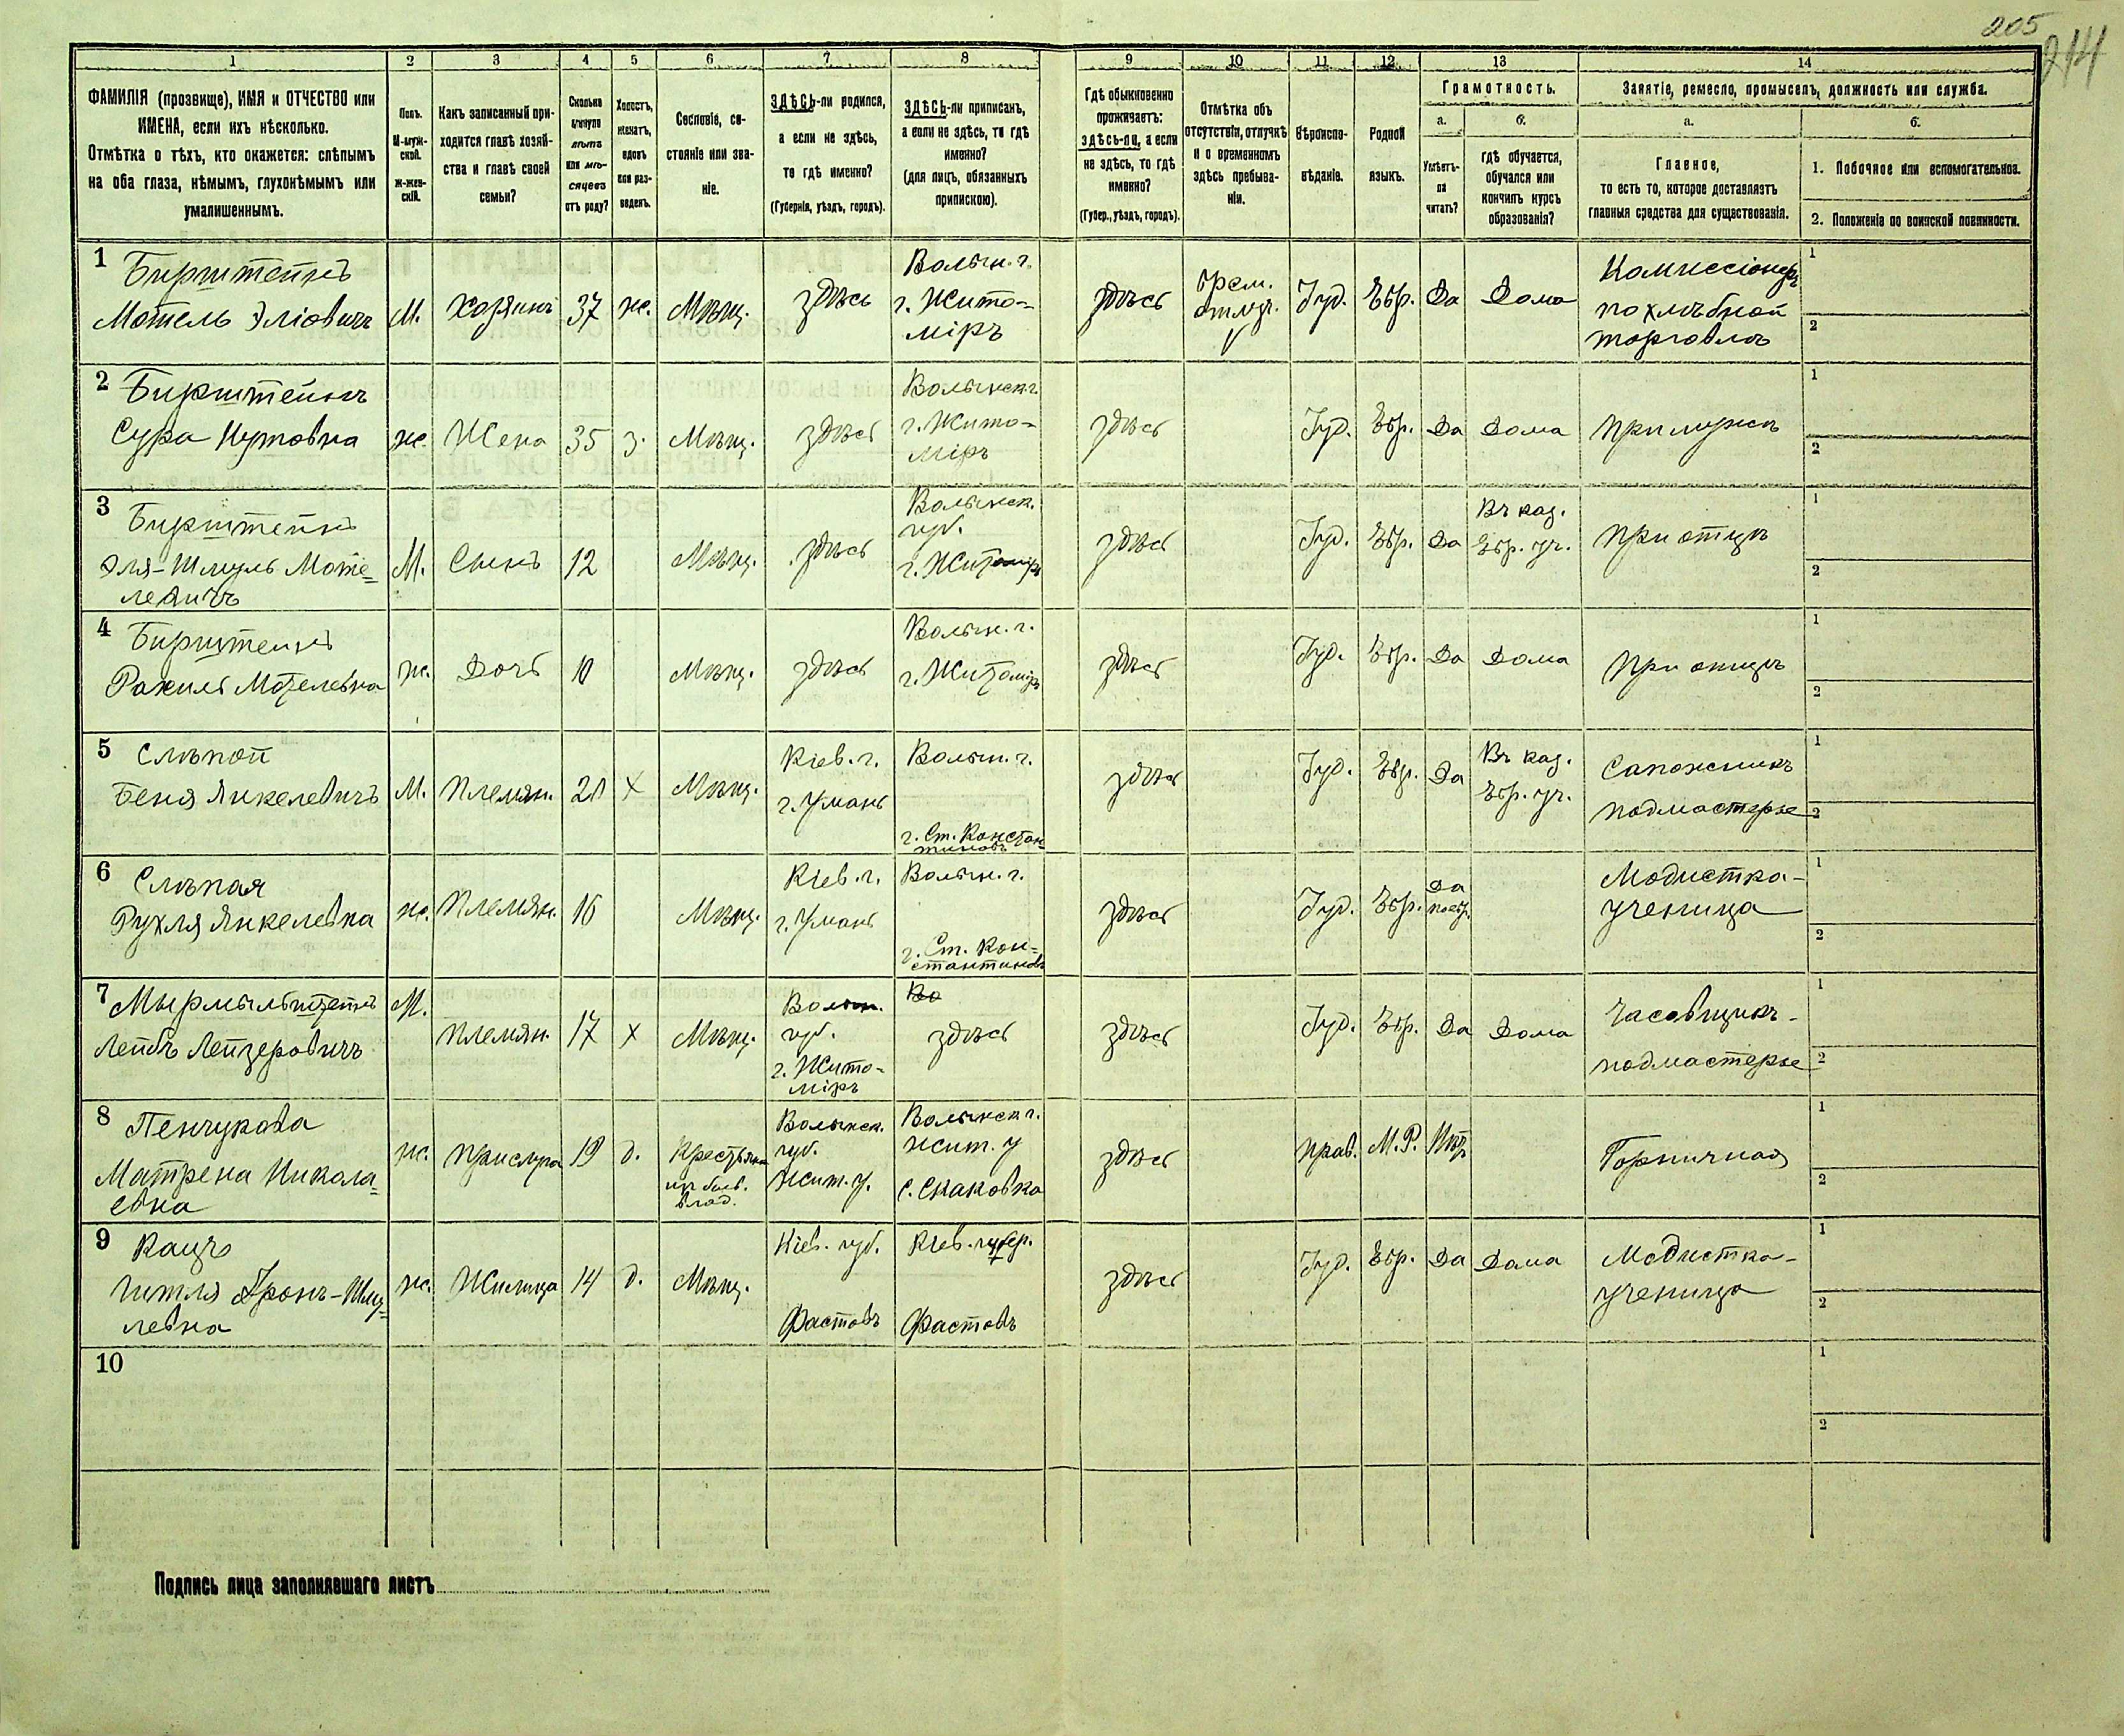 205
214
1 2 3 4 5 6 7 8 9 10 11 12 13 14
ФАМИЛІЯ (прозвище), ИМЯ и ОТЧЕСТВО или ИМЕНА, если ихъ нѣсколько.
Отмѣтка о тѣхъ, кто окажется: слѣпымъ на оба глаза, нѣмымъ, глухонѣмымъ или умалишеннымъ.
Полъ. М-мужской. Ж-женскій.
Какъ записанный приходится главѣ хозяйства и главѣ своей семьи?
Сколько минуло лѣтъ или мѣсяцевъ отъ роду?
Холостъ, женатъ, вдовъ или разведенъ.
Сословіе, состояніе или званіе.
ЗДѢСЬ-ли родился, а если не здѣсь, то гдѣ именно?
(Губернія, уѣздъ, городъ).
ЗДѢСЬ-ли приписанъ, а если не здѣсь, то гдѣ именно?
(для лицъ, обязанныхъ припискою).
Гдѣ обыкновенно проживаетъ: здѣсь-ли, а если не здѣсь, то гдѣ именно?
(Губер., уѣздъ, городъ).
Отмѣтка объ отсутствіи, отлучкѣ и о временномъ здѣсь пребываніи.
Вѣроисповѣданіе.
Родной языкъ.
Грамотность.
а. б.
Умѣетъ-ли читать?
гдѣ обучается, обучался или кончилъ курсъ образованія?
Занятіе, ремесло, промыселъ, должность или служба.
а. б.
Главное,
то есть то, которое доставляетъ главныя средства для существованія.
1. Побочное или вспомогательное.
2. Положеніе по воинской повинности.
1 Бирштейнъ
Мотель Эліовичъ М. Хозяинъ 37 ж. Мѣщ. здѣсь Волын. г. г. Житоміръ здѣсь врем. отлуч. Іуд. Евр. Да Дома Комиссіонеръ по хлѣбной торговлѣ 1 2
2 Бирштейнъ
Сура Нутовна ж. Жена 35 з. Мѣщ. здѣсь Волынск. г. г. Житоміръ здѣсь Іуд. Евр. Да Дома При мужѣ 1 2
3 Бирштейнъ
Эля-Шмуль Мотелевичъ М. Сынъ 12 Мѣщ. здѣсь Волынск. губ. г. Житоміръ здѣсь Іуд. Евр. Да Въ каз. Евр. уч. При отцѣ 1 2
4 Бирштейнъ
Рахиль Мотелевна ж. Дочь 10 Мѣщ. здѣсь Волын. г. г. Житоміръ здѣсь Іуд. Евр. Да Дома При отцѣ 1 2
5 Слѣпой
Беня Янкелевичъ М. Племян. 20 х Мѣщ. Кіев. г. г. Умань Волын. г. г. Ст. Константиновъ здѣсь Іуд. Евр. Да Въ каз. Евр. уч. Сапожникъ подмастерье 1 2
6 Слѣпая
Рухля Янкелевна ж. Племян. 16 Мѣщ. Кіев. г. г. Умань Волын. г. г. Ст. Константиновъ здѣсь Іуд. Евр. Да Модистка-ученица 1 2
7 Мырмыльштейнъ
Лейбъ Лейзеровичъ М. Племян. 17 х Мѣщ. Волын. губ. г. Житоміръ Во здѣсь здѣсь Іуд. Евр. Да Дома Часовщикъ-подмастерье 1 2
8 Пенчукова
Матрена Николаевна ж. Прислуга 19 д. Крестьянка из бывш. влад. Волынск. губ. Жит. у. Волынск. г. Жит. у. с. Скаковка здѣсь Прав. М. Р. Нѣт Горничная 1 2
9 Кацъ
Гитля Аронъ-Шмулевна ж. Жилица 14 д. Мѣщ. Кіев. губ. Фастовъ Кіев. губер. Фастовъ здѣсь Іуд. Евр. Да Дома Модистка-ученица 1 2
10 1 2
Подпись лица заполнявшаго листъ